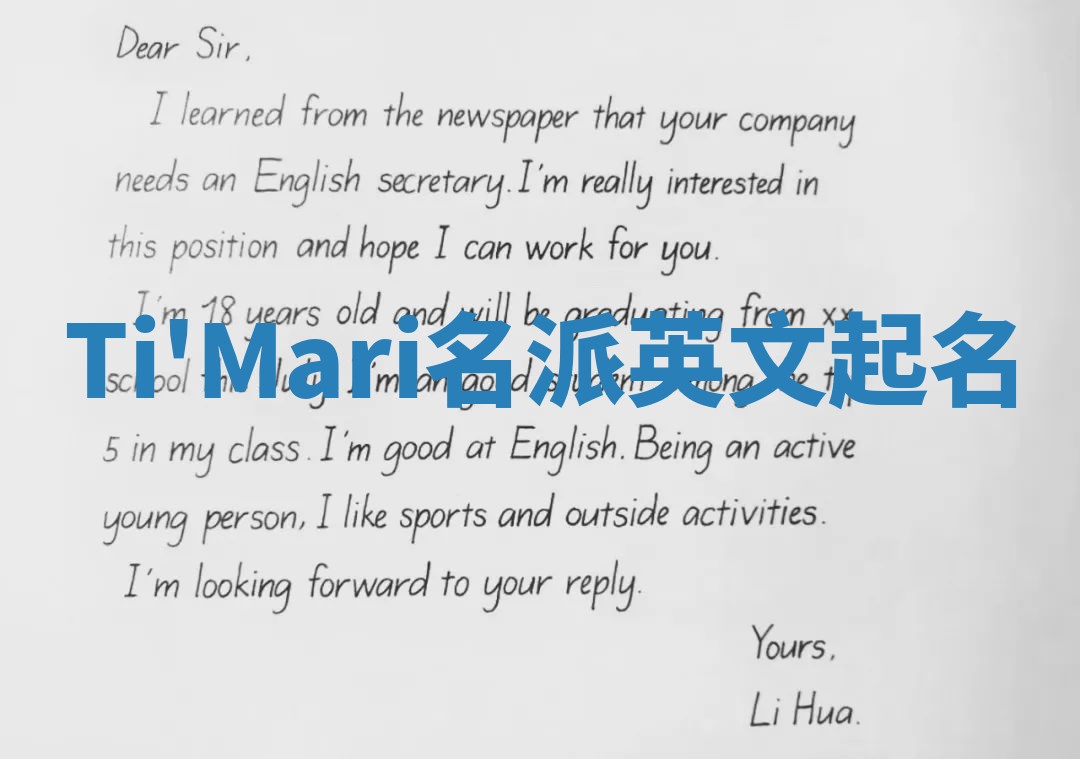 Dear Sir,
I learned from the newspaper that your company
needs an English secretary. I'm really interested in
this position and hope I can work for you.
I'm 18 years old and will be graduating from xx
Ti'Mari名派英文起名
school this July. I'm an good student among the top
5 in my class. I'm good at English. Being an active
young person, I like sports and outside activities.
I'm looking forward to your reply.
Yours,
Li Hua.